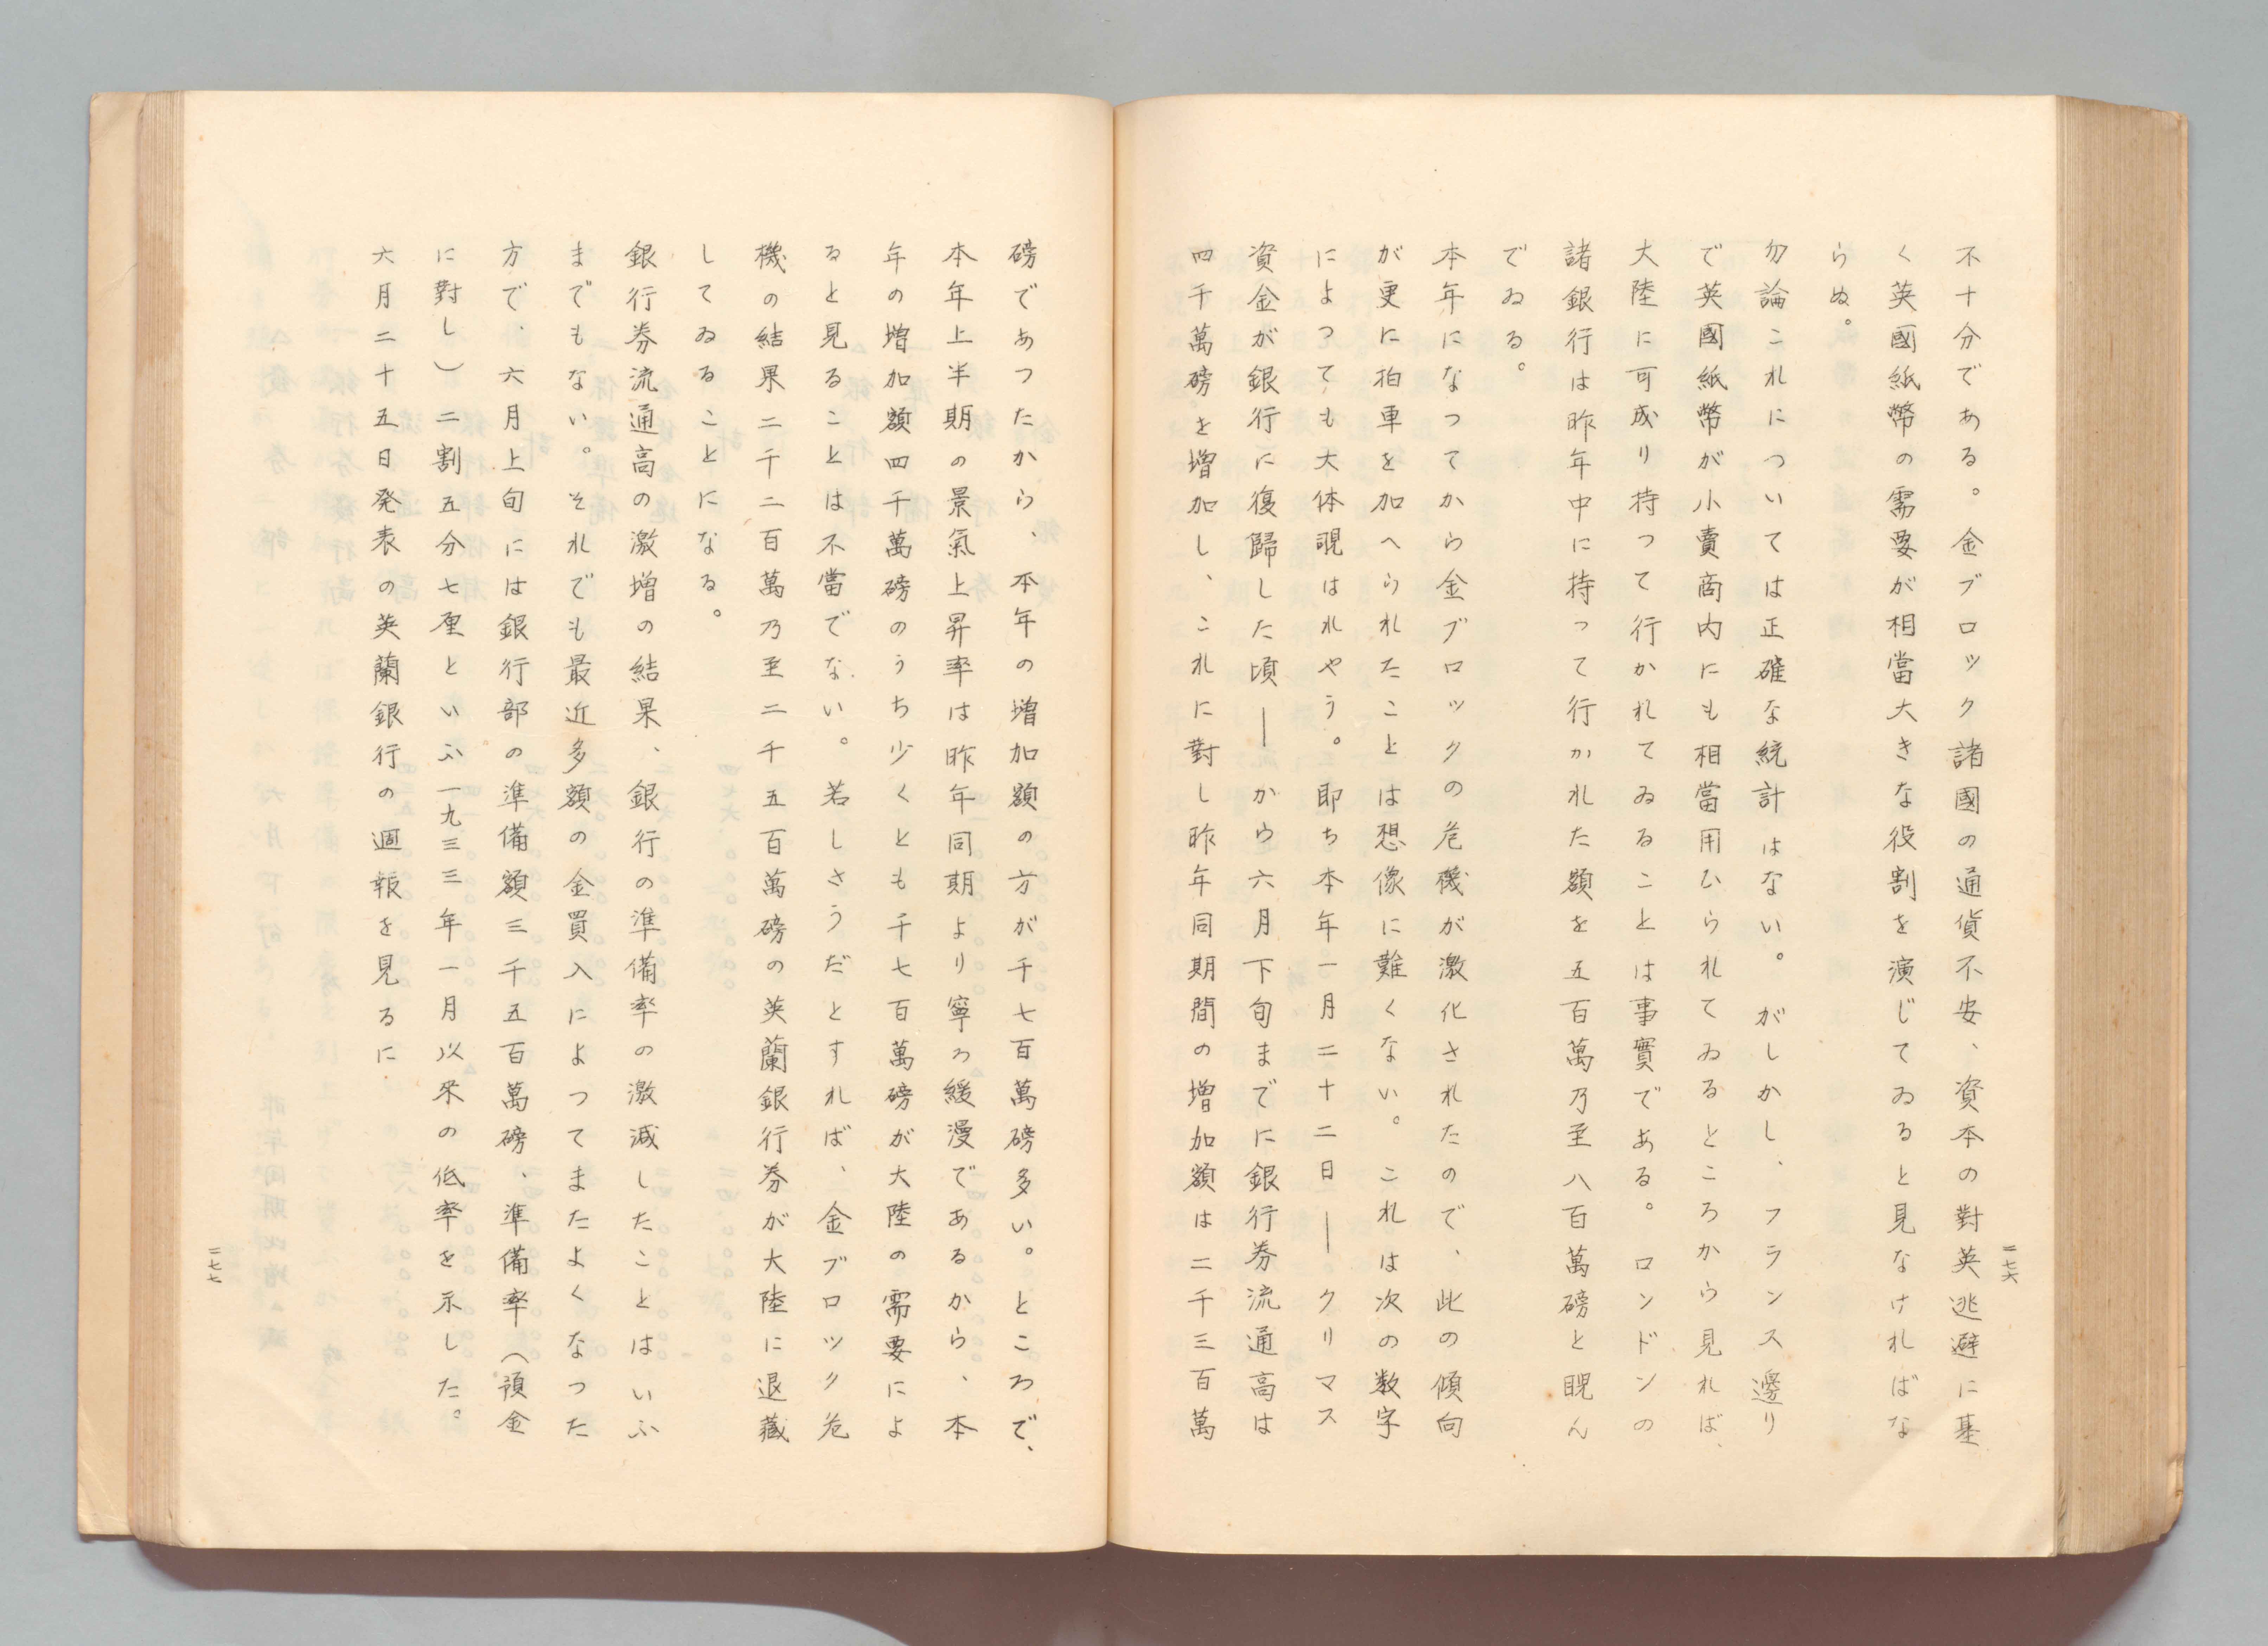 不十分である。金ブロック諸國の通貨不安、資本の對英逃避に基
く英國紙幣の需要が相當大きな役割を演じてゐると見なければな
らぬ。
勿論これについては正確な統計はない。がしかし、フランス邊り
で英國紙幣が小賣商内にも相當用ひられてゐるところから見れば、
大陸に可成り持つて行かれてゐることは事實である。ロンドンの
諸銀行は昨年中に持つて行かれた額を五百萬乃至八百萬磅と睨ん
でゐる。
本年になつてから金ブロックの危機が激化されたので、此の傾向
が更に拍車を加へられたことは想像に難くない。これは次の数字
によつても大体覗はれやう。即ち本年一月二十二日―クリマス
資金が銀行に復歸した頃―から六月下旬までに銀行券流通高は
四千萬磅を増加し、これに對し昨年同期間の増加額は二千三百萬
二七六
磅であつたから、本年の増加額の方が千七百萬磅多い。ところで、
本年上半期の景氣上昇率は昨年同期より寧ろ緩漫であるから、本
年の増加額四千萬磅のうち少くとも千七百萬磅が大陸の需要によ
ると見ることは不當でない。若しさうだとすれば、金ブロック危
機の結果二千二百萬乃至二千五百萬磅の英蘭銀行券が大陸に退藏
してゐることになる。
銀行券流通高の激増の結果、銀行の準備率の激減したことはいふ
までもない。それでも最近多額の金買入によつてまたよくなつた
方で、六月上旬には銀行部の準備額三千五百萬磅、準備率（預金
に對し）二割五分七厘といふ一九三三年一月以来の低率を示した。
六月二十五日発表の英蘭銀行の週報を見るに
二七七